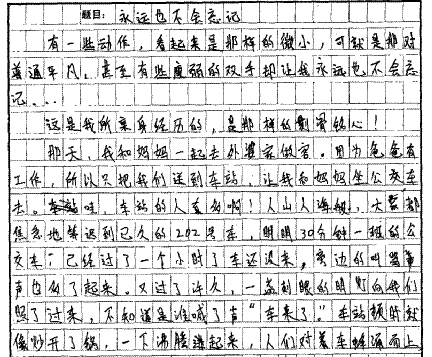 题目: 永远也不会忘记
有一些动作，看起来是那样的微小，可就是那对
普通平凡，甚至有些瘦弱的双手却让我永远也不会忘
记...
这是我所亲身经历的，是那样的刻骨铭心！
那天，我和妈妈一起去外婆家做客。因为爸爸有
工作，所以只把我们送到车站，让我和妈妈坐公交车
去。哇，车站的人真多啊！人山人海，大家都
焦急地等迟到已久的202号车，明明30分钟一班的公
交车，已经过了一个小时了车还没来，旁边的叫骂
声也多了起来。又过了许久，一盏刺眼的明灯向我们
照了过来，不知道是谁喊了声“车来了”。车站顿时就
像炒开了锅，一下沸腾起来，人们对着车蜂涌而上